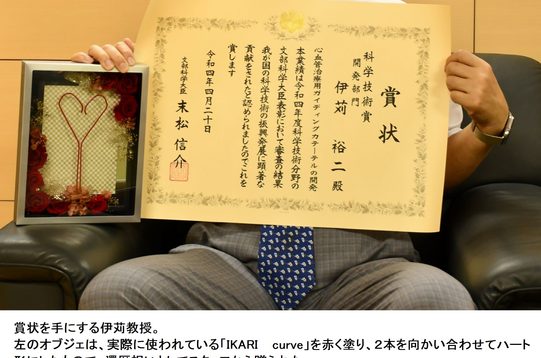 賞状
科学技術賞
開発部門
伊苅 裕二 殿
心血管治療用ガイディングカテーテルの開発
本業績は令和四年度科学技術分野の
文部科学大臣表彰において審査の結果
我が国の科学技術の振興発展に顕著な
貢献をされたと認められましたのでこれを
賞します
令和四年四月二十日
文部科学大臣 末松信介
賞状を手にする伊苅教授。
左のオブジェは、実際に使われている「IKARI curve」を赤く塗り、2本を向かい合わせてハート